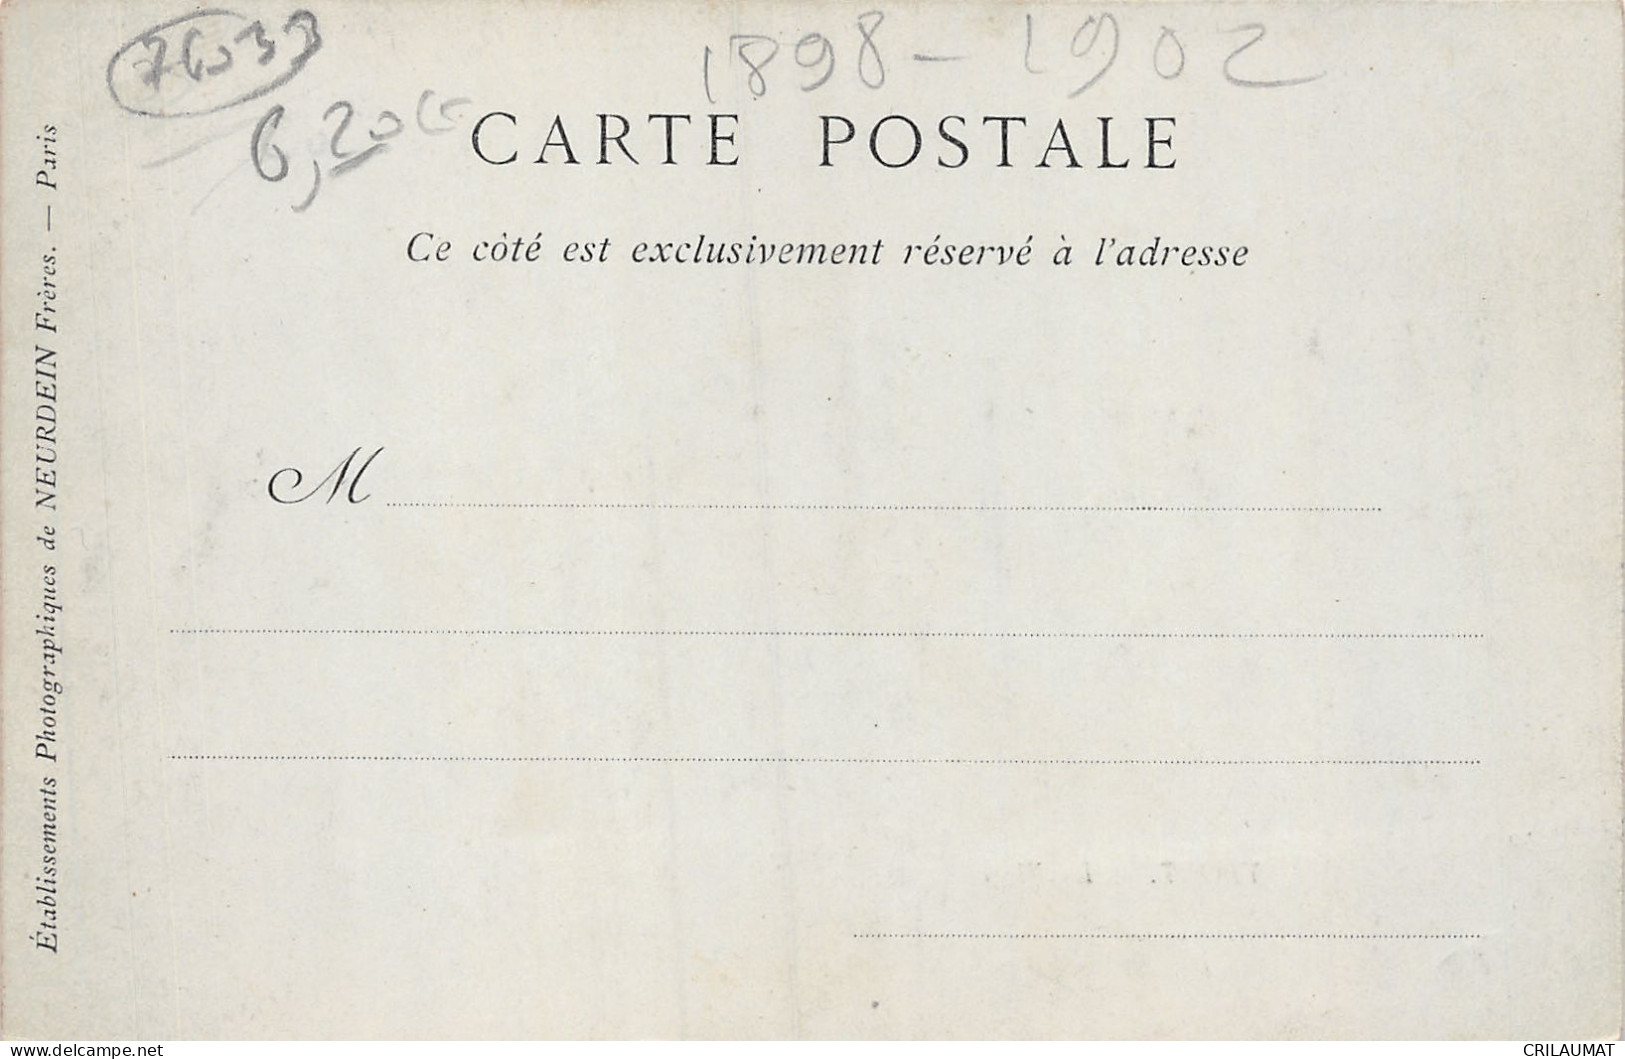 1898 - 1902
6,20
CARTE POSTALE
Ce côté est exclusivement réservé à l'adresse
M
Établissements Photographiques de NEURDEIN Frères. — Paris
www.delcampe.net
CRILAUMAT